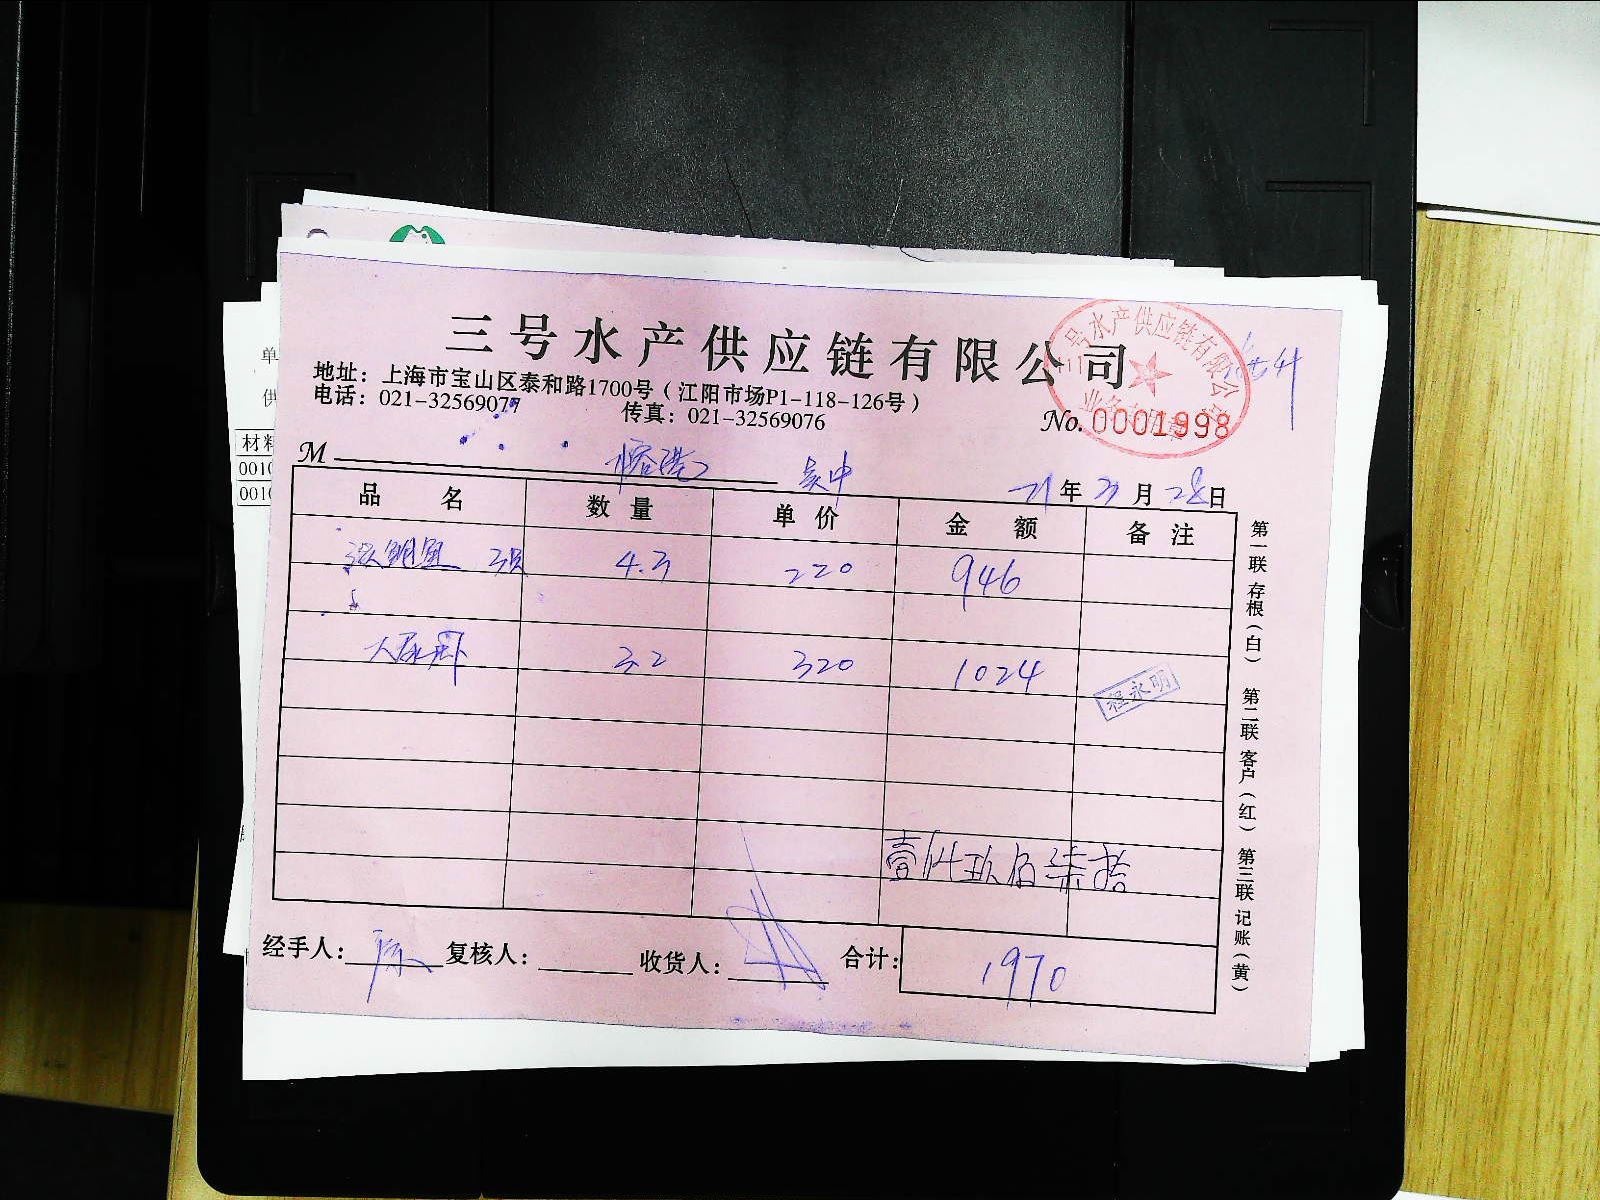 三号水产供应链有限公司
地址：上海市宝山区泰和路1700号（江阳市场P1-118-126号）
电话：021-32569077 传真：021-32569076
三号水产供应链有限公司
No. 0001998
M 吴中
21年3月28日
品名 数量 单价 金额 备注
4.3 220 946
3.2 320 1024
程永明
壹仟玖佰柒拾
经手人： 复核人： 收货人： 合计： 1970
第一联存根（白） 第二联客户（红） 第三联记账（黄）
单
供
材料
0010
0010